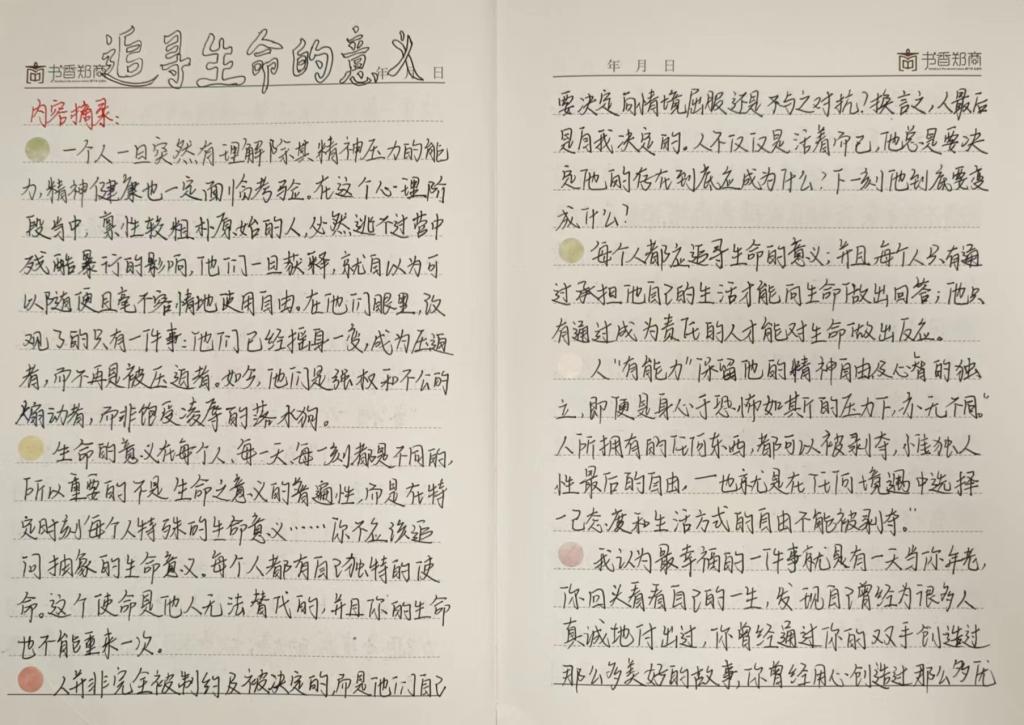 追寻生命的意义
书香郑商 年 月 日
内容摘录:
一个人一旦突然有理解除其精神压力的能
力,精神健康也一定面临考验。在这个心理阶
段当中,禀性较粗朴原始的人,必然逃不过营中
残酷暴行的影响,他们一旦获释,就自以为可
以随便且毫不容情地使用自由。在他们眼里,改
观了的只有一件事:他们已经摇身一变,成为压迫
者,而不再是被压迫者。如今,他们是强权和不公的
煽动者,而非饱受凌辱的落水狗。
生命的意义在每个人、每一天、每一刻都是不同的,
所以重要的不是生命之意义的普遍性,而是在特
定时刻每个人特殊的生命意义……你不应该追
问抽象的生命意义。每个人都有自己独特的使
命。这个使命是他人无法替代的,并且你的生命
也不能重来一次。
人并非完全被制约及被决定的,而是他们自己
年 月 日 书香郑商
要决定向情境屈服还是不与之对抗?换言之,人最后
是自我决定的。人不仅仅是活着而已,他总是要决
定他的存在到底应成为什么?下一刻他到底要变
成什么?
每个人都应追寻生命的意义;并且每个人只有通
过承担他自己的生活才能向生命做出回答;他只
有通过成为责任的人才能对生命做出反应。
人“有能力”保留他的精神自由及心智的独
立,即便是身心于恐怖如斯的压力下,亦无不同。“
人所拥有的任何东西,都可以被剥夺,惟独人
性最后的自由,—也就是在任何境遇中选择
一己态度和生活方式的自由不能被剥夺。”
我认为最幸福的一件事就是有一天当你年老,
你回头看看自己的一生,发现自己曾经为很多人
真诚地付出过,你曾经通过你的双手创造过
那么多美好的故事,你曾经用心创造过那么多优